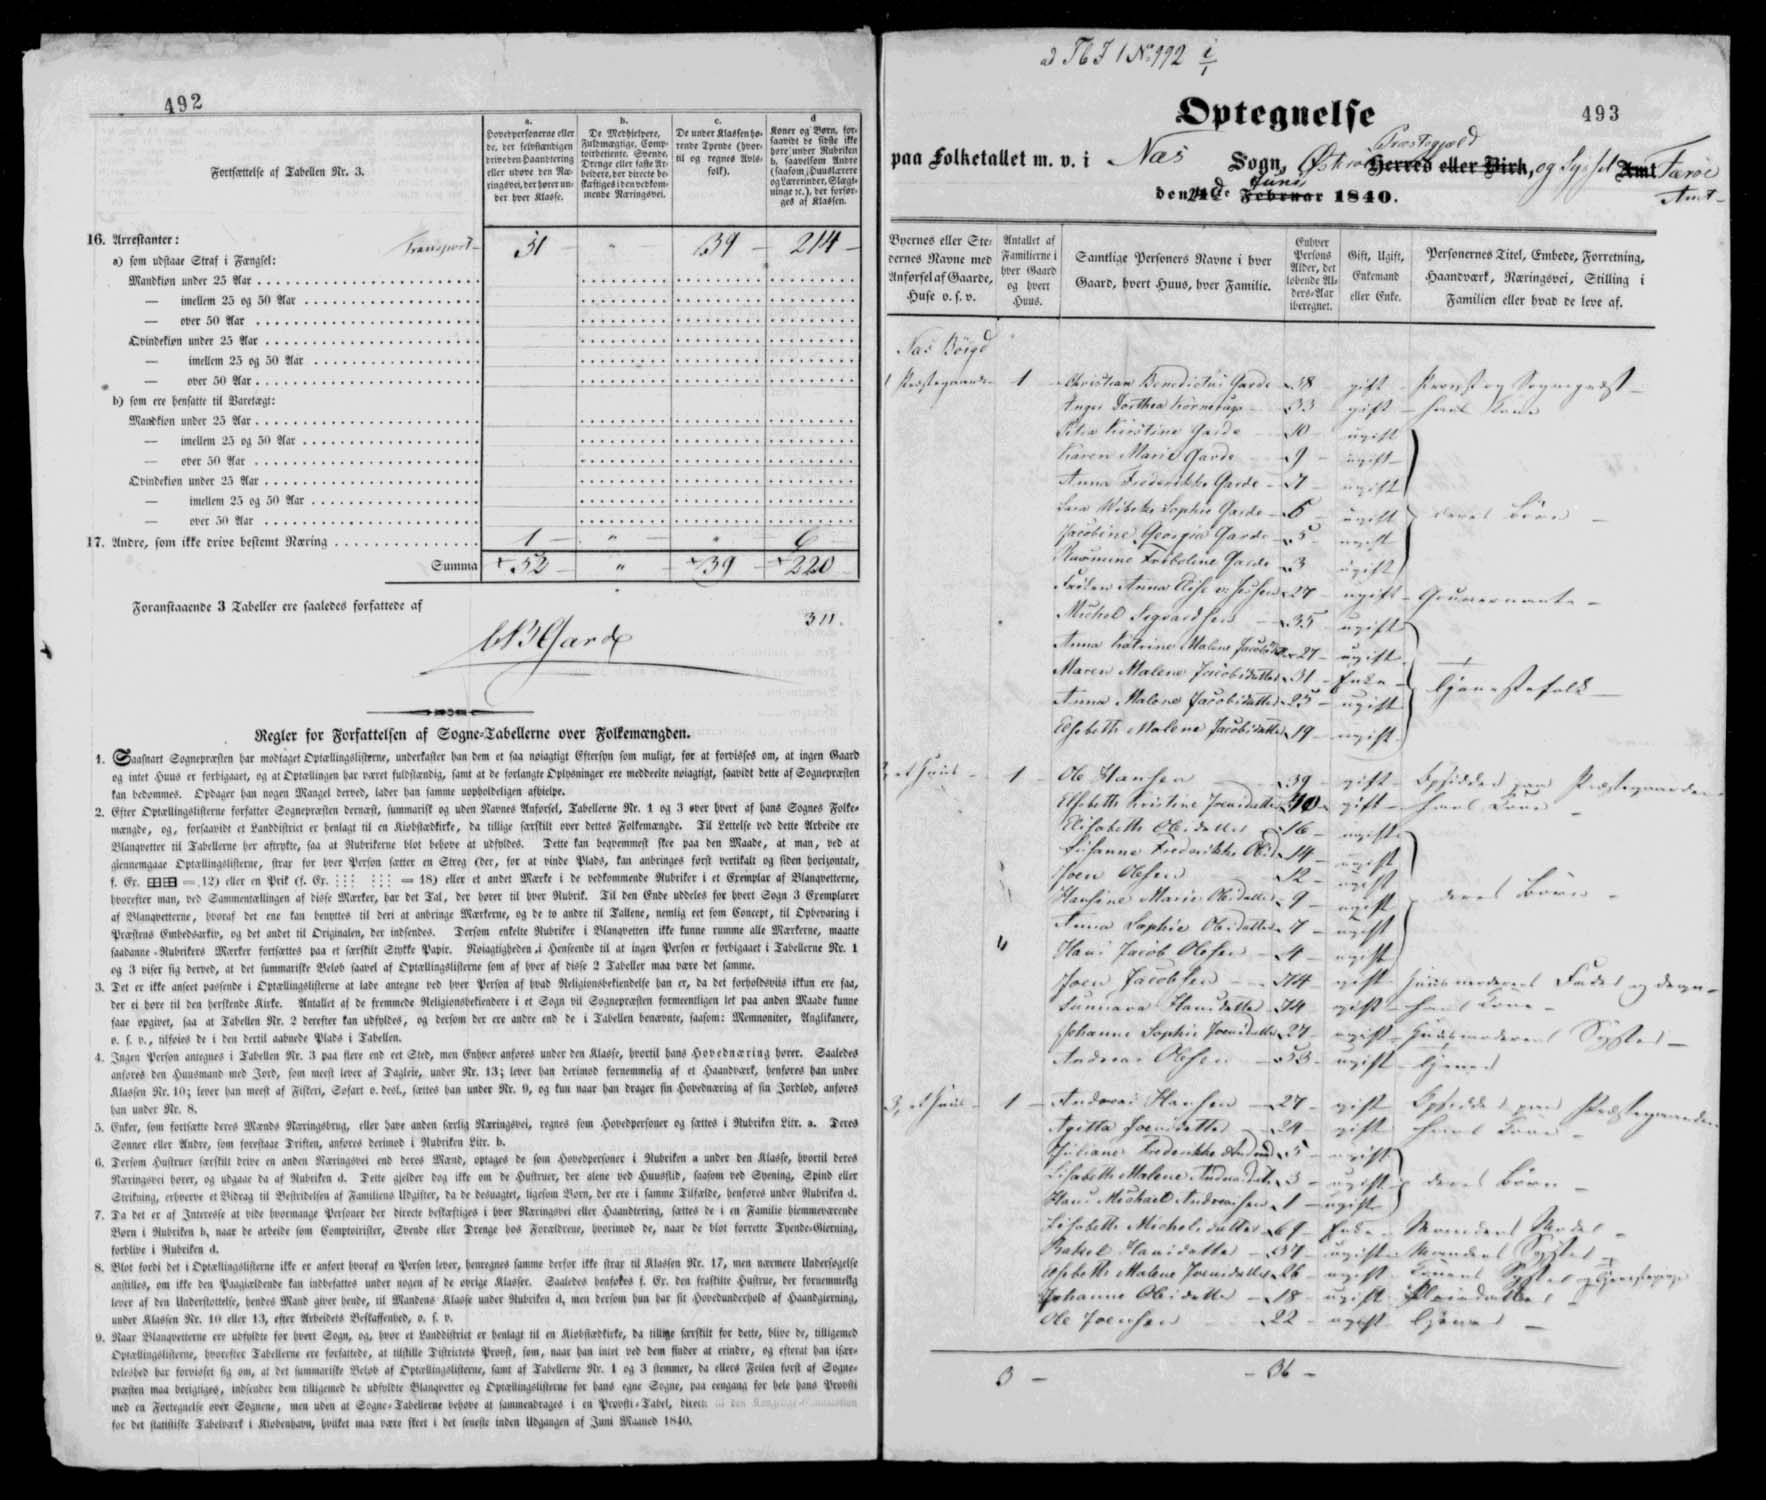 492
Fortsættelse af Tabellen Nr. 3.
a. Hovedpersonerne eller de, der selvstændigen drive den Haandtering eller udøve den Næringsvei, der hører under hver Klasse.
b. De Medhjelpere, Fuldmægtige, Comptoirbetiente, Svende, Drenge eller faste Arbeidere, der directe beskæftiges i den vedkommende Næringsvei.
c. De under Klassen hørende Tyende (hvortil og regnes Avlsfolk).
d. Koner og Børn, forsaavidt de sidste ikke høre under Rubriken b, saavelsom Andre (saasom Huuslærere og Lærerinder, Slægtninge ꝛc.), der forsørges af Klassen.
16. Arrestanter: Transport 51 — " — 39 — 214 —
a) som udstaae Straf i Fængsel:
Mandkiøn under 25 Aar
— imellem 25 og 50 Aar
— over 50 Aar
Qvindekiøn under 25 Aar
— imellem 25 og 50 Aar
— over 50 Aar
b) som ere hensatte til Varetægt:
Mandkiøn under 25 Aar
— imellem 25 og 50 Aar
— over 50 Aar
Qvindekiøn under 25 Aar
— imellem 25 og 50 Aar
— over 50 Aar
17. Andre, som ikke drive bestemt Næring 1 — " — " — 6 —
Summa 52 — " — 39 — 220
Foranstaaende 3 Tabeller ere saaledes forfattede af
311.
CB Garde
Regler for Forfattelsen af Sogne-Tabellerne over Folkemængden.
1. Saasnart Sognepræsten har modtaget Optællingslisterne, underkaster han dem et saa nøiagtigt Eftersyn som muligt, for at forvisses om, at ingen Gaard
og intet Huus er forbigaaet, og at Optællingen har været fuldstændig, samt at de forlangte Oplysninger ere meddeelte nøiagtigt, saavidt dette af Sognepræsten
kan bedømmes. Opdager han nogen Mangel derved, lader han samme uopholdeligen afhielpe.
2. Efter Optællingslisterne forfatter Sognepræsten dernæst, summarisk og uden Navnes Anførsel, Tabellerne Nr. 1 og 3 over hvert af hans Sognes Folke-
mængde, og, forsaavidt et Landdistrict er henlagt til en Kiøbstædkirke, da tillige særskilt over dettes Folkemængde. Til Lettelse ved dette Arbeide ere
Blanqvetter til Tabellerne her aftrykte, saa at Rubrikerne blot behøve at udfyldes. Dette kan beqvemmest skee paa den Maade, at man, ved at
giennemgaae Optællingslisterne, strax for hver Person sætter en Streg (der, for at vinde Plads, kan anbringes først vertikalt og siden horizontalt,
f. Ex. = 12) eller en Prik (f. Ex. = 18) eller et andet Mærke i de vedkommende Rubriker i et Exemplar af Blanqvetterne,
hvorefter man, ved Sammentællingen af disse Mærker, har det Tal, der hører til hver Rubrik. Til den Ende uddeles for hvert Sogn 3 Exemplarer
af Blanqvetterne, hvoraf det ene kan benyttes til deri at anbringe Mærkerne, og de to andre til Tallene, nemlig eet som Concept, til Opbevaring i
Præstens Embedsarkiv, og det andet til Originalen, der indsendes. Dersom enkelte Rubriker i Blanqvetten ikke kunne rumme alle Mærkerne, maatte
saadanne Rubrikers Mærker fortsættes paa et særskilt Stykke Papir. Nøiagtigheden i Henseende til at ingen Person er forbigaaet i Tabellerne Nr. 1
og 3 viser sig derved, at det summariske Beløb saavel af Optællingslisterne som af hver af disse 2 Tabeller maa være det samme.
3. Det er ikke anseet passende i Optællingslisterne at lade antegne ved hver Person af hvad Religionsbekiendelse han er, da det forholdsviis ikkun ere faa,
der ei høre til den herskende Kirke. Antallet af de fremmede Religionsbekiendere i et Sogn vil Sognepræsten formeentligen let paa anden Maade kunne
faae opgivet, saa at Tabellen Nr. 2 derefter kan udfyldes, og dersom der ere andre end de i Tabellen benævnte, saasom: Memnoniter, Anglikanere,
o. s. v., tilføies de i den dertil aabnede Plads i Tabellen.
4. Ingen Person antegnes i Tabellen Nr. 3 paa flere end eet Sted, men Enhver anføres under den Klasse, hvortil hans Hovednæring hører. Saaledes
anføres den Huusmand med Jord, som meest lever af Dagleie, under Nr. 13; lever han derimod fornemmelig af et Haandværk, henføres han under
Klassen Nr. 10; lever han meest af Fiskeri, Søfart o. desl., sættes han under Nr. 9, og kun naar han drager sin Hovednæring af sin Jordlod, anføres
han under Nr. 8.
5. Enker, som fortsætte deres Mænds Næringsbrug, eller have anden særlig Næringsvei, regnes som Hovedpersoner og sættes i Rubriken Litr. a. Deres
Sønner eller Andre, som forestaae Driften, anføres derimod i Rubriken Litr. b.
6. Dersom Hustruer særskilt drive en anden Næringsvei end deres Mænd, optages de som Hovedpersoner i Rubriken a under den Klasse, hvortil deres
Næringsvei hører, og udgaae da af Rubriken d. Dette gielder dog ikke om de Hustruer, der alene ved Huusflid, saasom ved Syening, Spind eller
Strikning, erhverve et Bidrag til Bestridelsen af Familiens Udgifter, da de desuagtet, ligesom Børn, der ere i samme Tilfælde, henføres under Rubriken d.
7. Da det er af Interesse at vide hvormange Personer der directe beskæftiges i hver Næringsvei eller Haandtering, sættes de i en Familie hiemmeværende
Børn i Rubriken b, naar de arbeide som Comptoirister, Svende eller Drenge hos Forældrene, hvorimod de, naar de blot forrette Tyende-Gierning,
forblive i Rubriken d.
8. Blot fordi det i Optællingslisterne ikke er anført hvoraf en Person lever, henregnes samme derfor ikke strax til Klassen Nr. 17, men nærmere Undersøgelse
anstilles, om ikke den Paagiældende kan indbefattes under nogen af de øvrige Klasser. Saaledes henføres f. Ex. den fraskilte Hustrue, der fornemmelig
lever af den Understøttelse, hendes Mand giver hende, til Mandens Klasse under Rubriken d, men dersom hun har sit Hovedunderhold af Haandgierning,
under Klassen Nr. 10 eller 13, efter Arbeidets Beskaffenhed, o. s. v.
9. Naar Blanqvetterne ere udfyldte for hvert Sogn, og, hvor et Landdistrict er henlagt til en Kiøbstædkirke, da tillige særskilt for dette, blive de, tilligemed
Optællingslisterne, hvorefter Tabellerne ere forfattede, at tilstille Districtets Provst, som, naar han intet ved dem finder at erindre, og efterat han især-
deleshed har forvisset sig om, at det summariske Beløb af Optællingslisterne, samt af Tabellerne Nr. 1 og 3 stemmer, da ellers Feilen først af Sogne-
præsten maa berigtiges, indsender dem tilligemed de udfyldte Blanqvetter og Optællingslisterne for hans egne Sogne, paa eengang for hele hans Provsti
med en Fortegnelse over Sognene, men uden at Sogne-Tabellerne behøve at sammendrages i en Provsti-Tabel, directe
for det statistiske Tabelværk i Kiøbenhavn, hvilket maa være skeet i det seneste inden Udgangen af Juni Maaned 1840.
493
Optegnelse
paa Folketallet m. v. i Næs Sogn, Præstegjæld Herred eller Birk, og Syssel Amt Færøe Amt
den de Juni Februar 1840.
Byernes eller Stedernes Navne med Anførsel af Gaarde, Huse o. s. v.
Antallet af Familierne i hver Gaard og hvert Huus.
Samtlige Personers Navne i hver Gaard, hvert Huus, hver Familie.
Enhver Persons Alder, det løbende Alders-Aar iberegnet.
Gift, Ugift, Enkemand eller Enke.
Personernes Titel, Embede, Forretning, Haandværk, Næringsvei, Stilling i Familien eller hvad de leve af.
Næs Böigd
1 Præstegaarden 1 — Christian Benedictus Garde — 38 — gift — Provst og Sognepræst —
Inger Dorthea Kornerup — 33 — gift — hans Kone
Petra Kirstine Garde — 10 — ugift
Karen Marie Garde — 9 — ugift
Anna Frederikke Garde — 7 — ugift
Sara Vibeke Sophie Garde — 6 — ugift deres Börn —
Jacobine Georgia Garde — 5 — ugift
Rasmine Garde — 3 ugift
Fröken Anna — 27 — ugift — Gouvernante —
Michel Sigvardsen — 35 — ugift
Anna Katrine Malene Jacobsd — 27 — ugift
Maren Malene Jacobsdatter — 31 — Enke — Tjenestefolk —
Anna Malene Jacobsdatter — 25 — ugift
Elsebeth Malene Jacobsdatter — 19 — ugift
2, et Huus — 1 — Ole Hansen — 39 — gift — Opsidder paa Præstegaarden
Elsebeth Kristine Joensdatter — 40 — gift — hans Kone
Elisabeth Olesdatter — 16 — ugift
Susanne Frederikke Olesd — 14 — ugift
Joen Olesen — 12 — ugift
Hansine Marie Olesdatter — 9 — ugift deres Börn —
Anna Sophie Olesdatter — 7 — ugift
Hans Jacob Olesen — 4 — ugift
Joen Jacobsen — 74 — gift Huusmoderens Fader
Sunnava Hansdatter — 74 gift — hans Kone —
Johanne Sophie Joensdatter — 27 — ugift — Huusmoderens Syster —
Andreas Olesen — 53 — ugift — tjener
3, et Huus — 1 — Andreas Hansen — 27 — gift — Opsidder paa Præstegaarden
Joensdatter — 24 — gift — hans Kone —
Juliane Frederikke Andreasd — 5 — ugift
Lisabeth Malene Andreasdatter — 3 — ugift deres Börn —
Hans Michael Andreasen — 1 — ugift
Lisabeth Michelsdatter — 69 — Enke — Mandens Moder —
Rakel Hansdatter — 37 — ugift — Mandens Syster —
Elsebeth Malene Joensdatter — 26 — ugift — Konens Syster og Tjenestepige
Johanne Olesdatter — 18 — ugift —
Ole Joensen — 22 — ugift — tjener —
3 — — 36 —